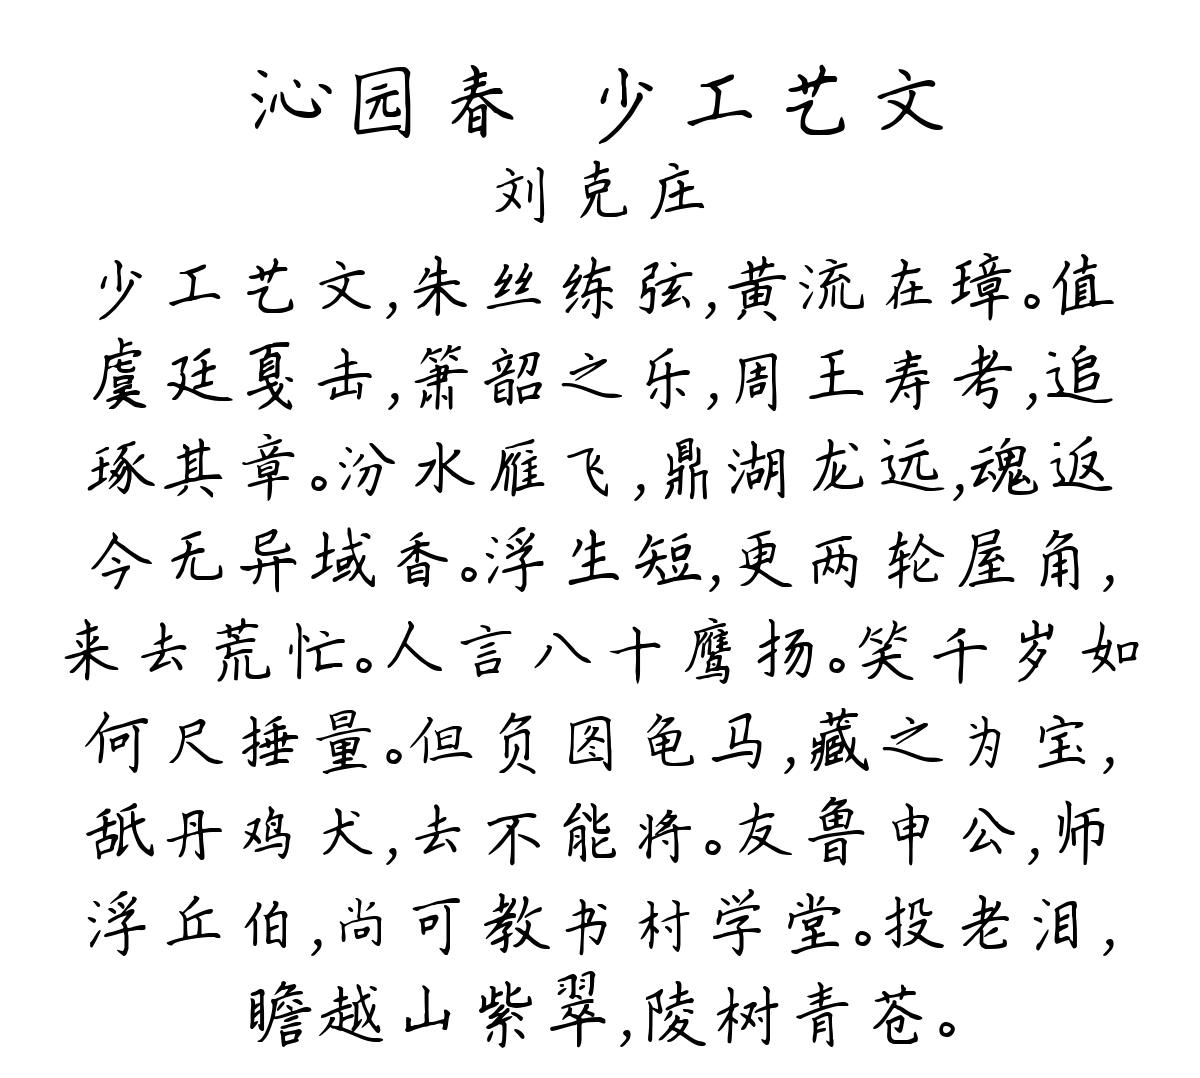 沁园春 少工艺文
刘克庄
少工艺文,朱丝练弦,黄流在璋。值
虞廷戛击,箫韶之乐,周王寿考,追
琢其章。汾水雁飞,鼎湖龙远,魂返
今无异域香。浮生短,更两轮屋角,
来去荒忙。人言八十鹰扬。笑千岁如
何尺捶量。但负图龟马,藏之为宝,
舐丹鸡犬,去不能将。友鲁申公,师
浮丘伯,尚可教书村学堂。投老泪,
瞻越山紫翠,陵树青苍。